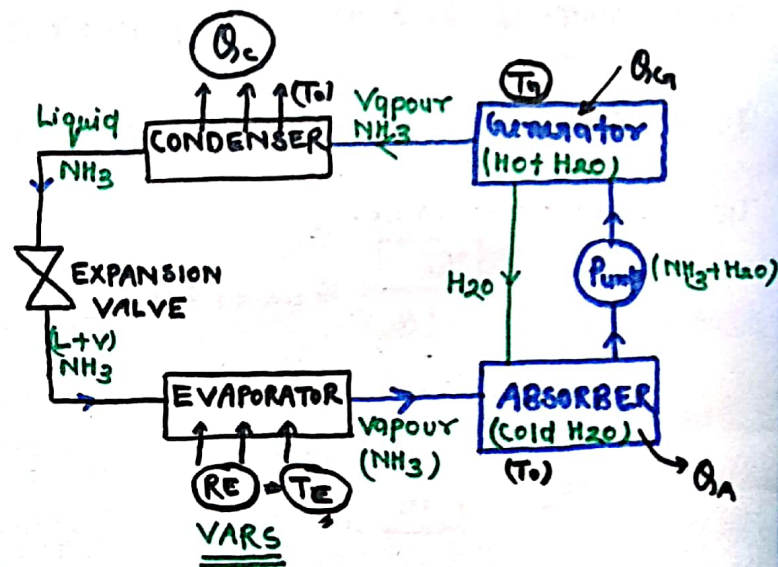 Qc
(To)
Liquid
NH3
CONDENSER
Vapour
NH3
TG
QG
Generator
(HOt H2O)
EXPANSION
VALVE
H2O
Pump
(NH3+H2O)
(L+V)
NH3
EVAPORATOR
Vapour
(NH3)
ABSORBER
(Cold H2O)
(To)
QA
RE = TE
VARS